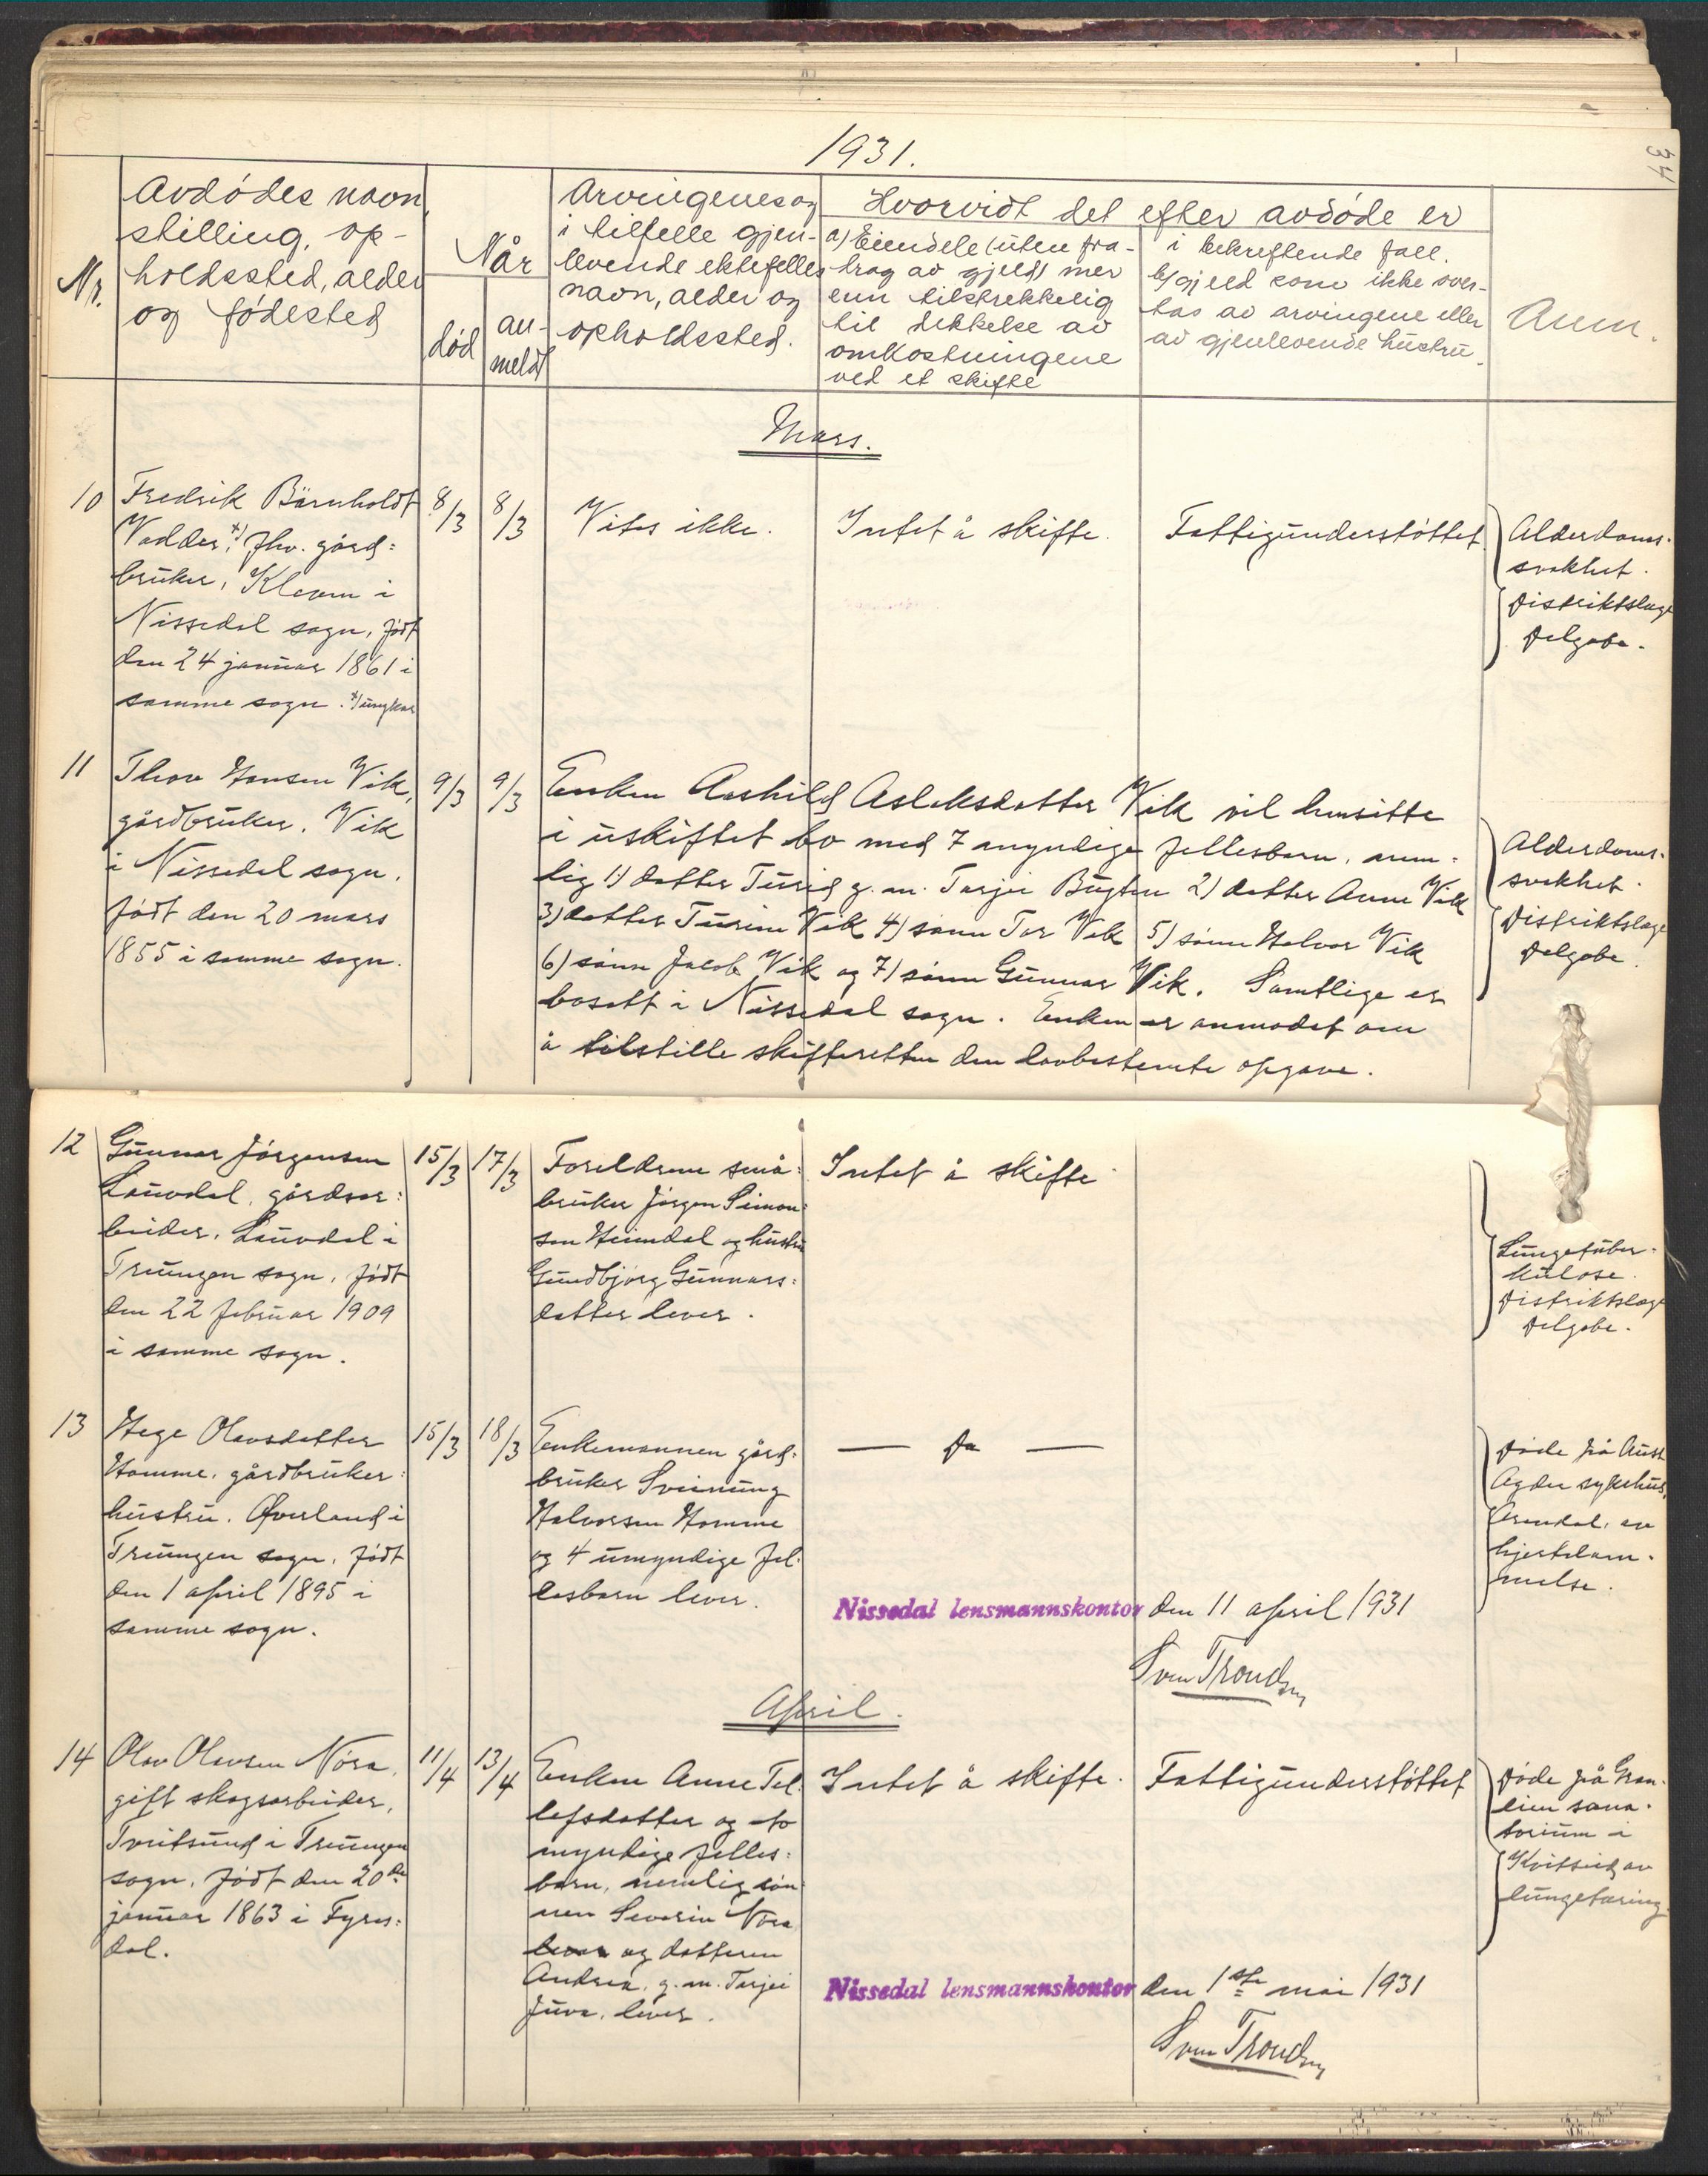 1931.
34
Nr.
Avdødes navn,
stilling, op-
holdssted, alder
og fødested
Når
død
an-
meldt
Arvingenes og
i tilfelle gjen-
levende ektefelles
navn, alder og
opholdssted.
Hvorvidt det efter avdøde er
a) Eiendele (uten fra-
drag av gjeld) mer
enn tilstrekkelig
til dekkelse av
omkostningene
ved et skifte
i bekreftende fall.
b) gjeld som ikke over-
tas av arvingene eller
av gjenlevende hustru.
Anm.
Mars.
10
Fredrik Bärnholdt
Vadder, x) fhv. gård=
bruker, Kleven i
Nissedal sogn, født
den 24 januar 1861 i
samme sogn. x) ungkar
8/3
8/3
Vites ikke.
Intet å skifte.
Fattigunderstøttet.
Alderdoms-
svakhet.
Distriktslæge
Felgabe.
11
Thov Hansen Vik,
gårdbruker, Vik
i Nissedal sogn,
født den 20 mars
1855 i samme sogn.
9/3
9/3
Enken Aashild Aslaksdatter Vik vil hensitte
i uskiftet bo med 7 myndige fellesbarn, nem-
lig 1) datter Turid g. m. Tarjei 2) datter Anne Vik
3) datter Turine Vik 4) sønn Tor Vik 5) sønn Halvor Vik
6) sønn Jacob Vik og 7) sønn Gunnar Vik. Samtlige er
bosatt i Nissedal sogn. Enken er anmodet om
å tilstille skifteretten den lovbestemte opgave.
Alderdoms-
svakhet.
Distriktslæge
Felgabe.
12
Gunnar Jørgensen
Lauvdal, gårdsar=
beider, Lauvdal i
Treungen sogn, født
den 22 februar 1909
i samme sogn.
15/3
17/3
Foreldrene små=
bruker Jørgen Simon=
sen Heimdal og hustru
Gundbjørg Gunnars=
datter lever.
Intet å skifte
Lungetuber-
kulose.
Distriktslæge
Felgabe.
13
Hege Olavsdatter
Homme, gårdbruker=
hustru, Øverland i
Treungen sogn, født
den 1 april 1895 i
samme sogn.
15/3
18/3
Enkemannen gård=
bruker Sveinung
Halvorsen Homme
og 4 umyndige fel=
lesbarn lever.
— Do —
Døde på Aust
Agder sykehus,
Arendal, av
hjertelam-
melse.
Nissedal lensmannskontor den 11 april 1931
Sven Trondsen
April.
14
Olav Olavsen Nora,
gift skogsarbeider,
Tveitsund i Treungen
sogn, født den 20de
januar 1863 i Fyres=
dal.
11/4
13/4
Enken Anne Tel=
lefsdatter og to
myndige felles=
barn, nemlig søn=
nen Severin Nora
lever og datteren
Andrea, g. m. Tarjei
Juva, lever.
Intet å skifte.
Fattigunderstøttet
Døde på Gran-
lien sana-
torium i
Kviteseid av
lungetæring.
Nissedal lensmannskontor den 1ste mai 1931
Sven Trondsen